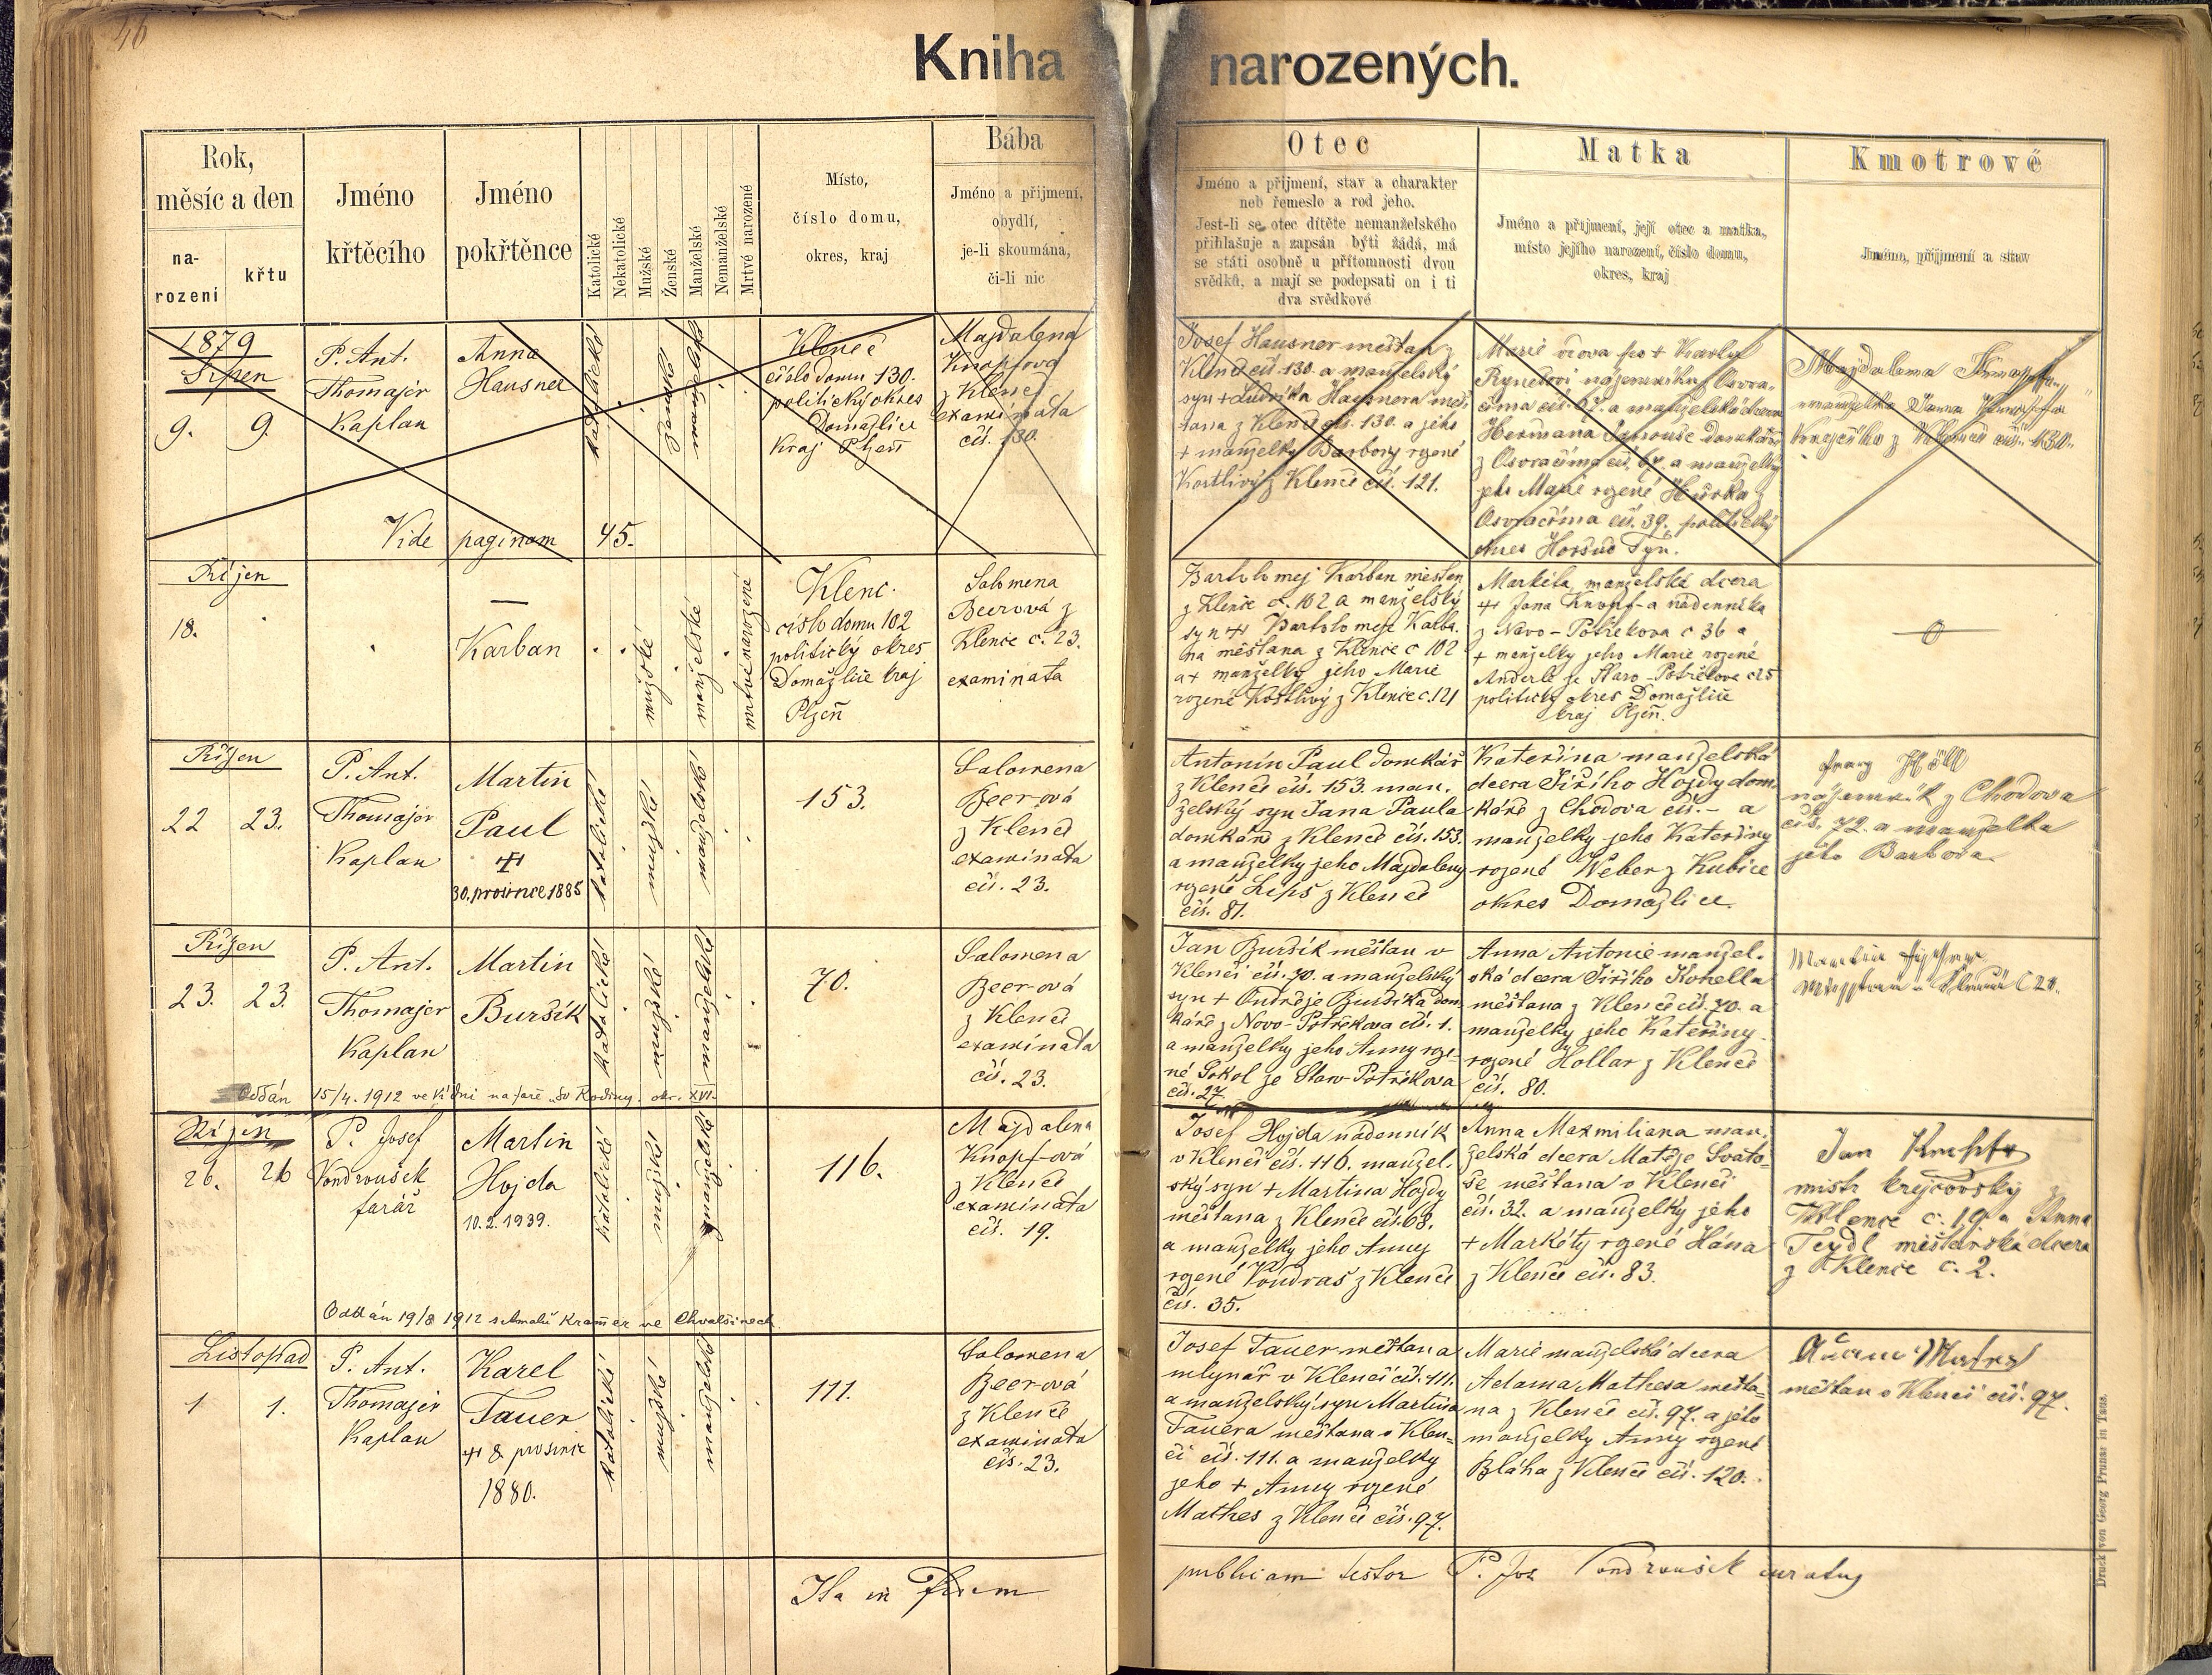 46
Kniha narozených.
Rok,
měsíc a den
na-
rození
křtu
Jméno
křtěcího
Jméno
pokřtěnce
Katolické
Nekatolické
Mužské
Ženské
Manželské
Nemanželské
Mrtvé narozené
Místo,
číslo domu,
okres, kraj
Bába
Jméno a příjmení,
obydlí,
je-li skoumána,
či-li nic
Otec
Jméno a příjmení, stav a charakter
neb řemeslo a rod jeho.
Jest-li se otec dítěte nemanželského
přihlašuje a zapsán býti žádá, má
se státi osobně u přítomnosti dvou
svědků, a mají se podepsati on i ti
dva svědkové
Matka
Jméno a příjmení, její otec a matka,
místo jejího narození, číslo domu,
okres, kraj
Kmotrové
Jméno, příjmení a stav
1879
Srpen
9. 9.
P. Ant.
Thomajer
Kaplan
Anna
Hausner
katolické
ženské
manželské
Klenčí
číslo domu 130.
politický okres
Domažlice
Kraj Plzeň
Magdalena
Knopfová
z Klenčí
examináta
čís. 130.
Vide paginam 45.
Josef Hausner měšťan z
Klenčí čís. 130. a manželský
syn + Ludvíka Hausnera měš
ťana z Klenčí čís. 130. a jeho
+ manželky Barbory rozené
Kostlivý z Klenčí čís. 121.
Marie dcera + Karla
čís. 67. a manželská dcera
z Osvračína čís. 67. a manželky
jeho Marie rozené Hůrka z
Osvračína čís. 39. politický
okres Horšův Týn.
Magdalena
manželka
z Klenčí čís. 130.
Říjen
18.
—
Karban
mužské
manželské
mrtvé narozené
Klenč.
číslo domu 102
politický okres
Domažlice kraj
Plzeň
Salomena
Beerová z
Klenče č. 23.
examinata
Bartoloměj Karban měšťan
z Klenče č. 102 a manželský
syn + Bartoloměje Karba
na měšťana z Klenče č 102
a + manželky jeho Marie
rozené Kostlivý z Klenče č. 121
Markéta, manželská dcera
+ Jana Knopf-a nádenníka
z Novo-Postřekova č 36 a
+ manželky jeho Marie rozené
Anderle ze Staro-Postřekova č 25
politický okres Domažlice
kraj Plzeň.
Říjen
22 23.
P. Ant.
Thomajer
Kaplan
Martin
Paul
+
30. prosince 1885
katolické
mužské
manželské
153.
Salomena
Beer-ová
z Klenčí
examináta
čís. 23.
Antonín Paul domkář
z Klenčí čís. 153. man.
želský syn Jana Paula
domkáře z Klenčí čís. 153.
a manželky jeho Magdaleny
rozené Leps z Klenčí
čís. 81.
Kateřina manželská
dcera Jiřího Hojdy dom.
káře z Chodova čís. - a
manželky jeho Kateřiny
rozené Weber z Kubice
okres Domažlice.
Franz Höll
nájemník z Chodova
čís. 72. a manželka
jeho Barbora
Říjen
23. 23.
P. Ant.
Thomajer
Kaplan
Martin
Buršík
katolické
mužské
manželské
70.
Salomena
Beer-ová
z Klenčí
examináta
čís. 23.
Oddán 15/4. 1912 ve Vídni na faře „sv. Rodiny. okr. XVI.
Jan Buršík měšťan v
Klenčí čís. 70. a manželský
syn + Ondřeje Buršíka dom.
káře z Novo-Postřekova čís. 1.
a manželky jeho Anny roze-
né Sokol ze Staro-Postřekova
čís. 27.
Anna Antonie manžel.
ská dcera Jiřího Konella
měšťana z Klenčí čís. 70. a
manželky jeho Kateřiny
rozené Hollar z Klenčí
čís. 80.
Martin
Říjen
26. 26
P. Josef
Vondroušek
farář
Martin
Hojda
10.2.1939.
katolické
mužské
manželské
116.
Magdalena
Knopf-ová
z Klenčí
examináta
čís. 19.
Oddán 19/8 1912 s Amalií Kramer ve Chvalšinech
Josef Hojda nádenník
v Klenčí čís. 116. manžel.
ský syn + Martina Hojdy
měšťana z Klenčí čís. 68.
a manželky jeho Anny
rozené Vondraš z Klenčí
čís. 35.
Anna Maxmiliana man.
želská dcera Matěje Svato-
še měšťana v Klenčí
čís. 32. a manželky jeho
+ Markéty rozené Hána
z Klenčí čís. 83.
Jan Knopf
mistr krejčovský z
Klenče č. 19. a Anna
Teydl měšťanská dcera
z Klenče č. 2.
Listopad
1 1.
P. Ant.
Thomajer
Kaplan
Karel
Tauer
+ 8 prosince
1880.
katolické
mužské
manželské
111.
Salomena
Beer-ová
z Klenčí
examináta
čís. 23.
Josef Tauer měšťan a
mlynář v Klenčí čís. 111.
a manželský syn Martina
Tauera měšťana v Klen-
čí čís. 111. a manželky
jeho + Anny rozené
Mathes z Klenčí čís. 97.
Marie manželská dcera
Adama Mathesa měšťa-
na z Klenčí čís. 97. a jeho
manželky Anny rozené
Bláha z Klenčí čís. 120.
Adam Mathes
měšťan v Klenčí čís. 97.
Ita in fidem publicam testor P. Jos Vondroušek curatus
Druck von Georg Prunar in Taus.